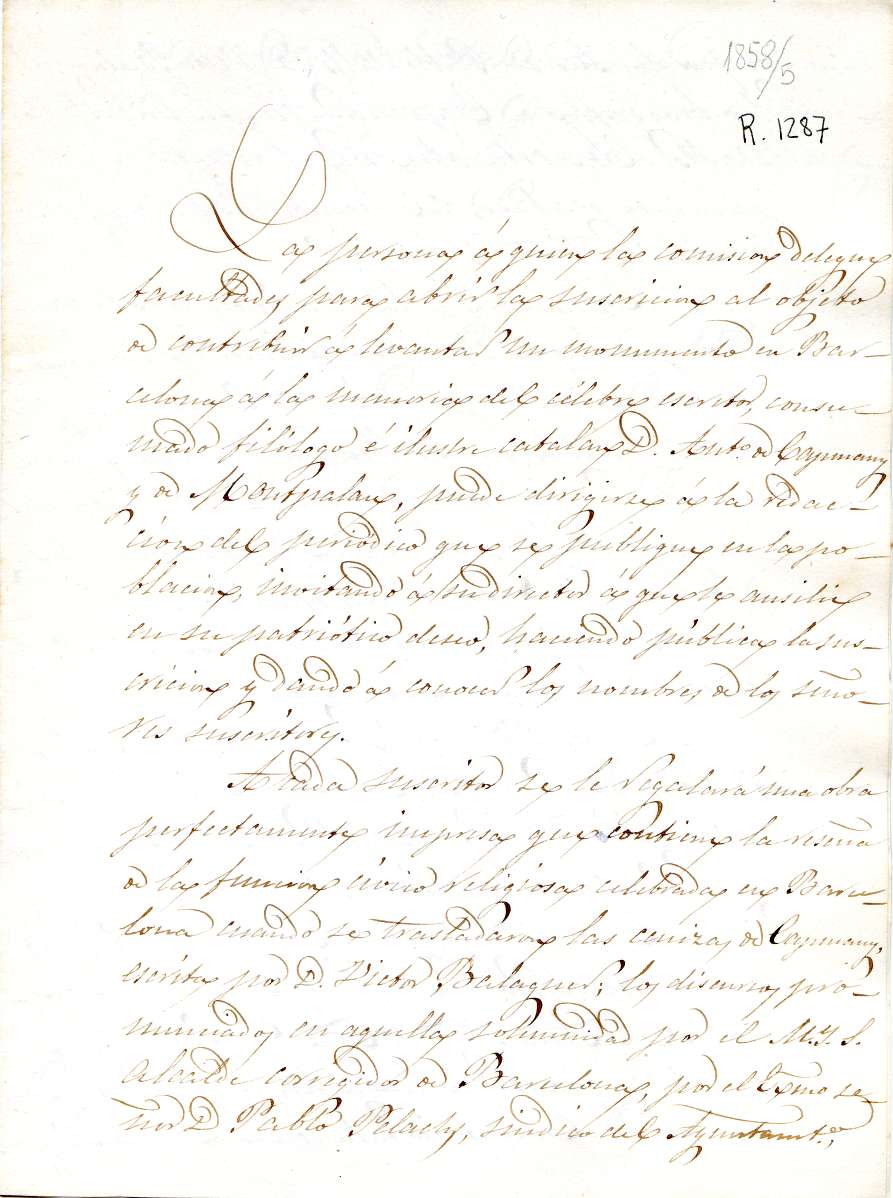 1858/5
R. 1287
La persona á quien la comision delegue
facultades para abrir la suscricion al objeto
de contribuir á levantar un monumento en Bar-
celona á la memoria del célebre escritor, consu-
mado filólogo é ilustre catalan D. Anto. de Capmany
y de Montpalau, puede dirigirse á la redac-
cion del periódico que se publique en la po-
blacion, invitando á su director á que le ausilie
en su patriótico deseo, haciendo pública la sus-
cricion y dando á conocer los nombres de los seño-
res suscritores.
A cada suscritor se le regalará una obra
perfectamente impresa que contiene la reseña
de la funcion cívico religiosa celebrada en Barce-
lona cuando se trasladaron las cenizas de Capmany,
escrita por D. Victor Balaguer; los discursos pro-
nunciados en aquella solemnidad por el M. Y. S.
Alcalde corregidor de Barcelona, por el Exmo se-
ñor D Pablo Pelachs, síndico del Ayuntamto.,